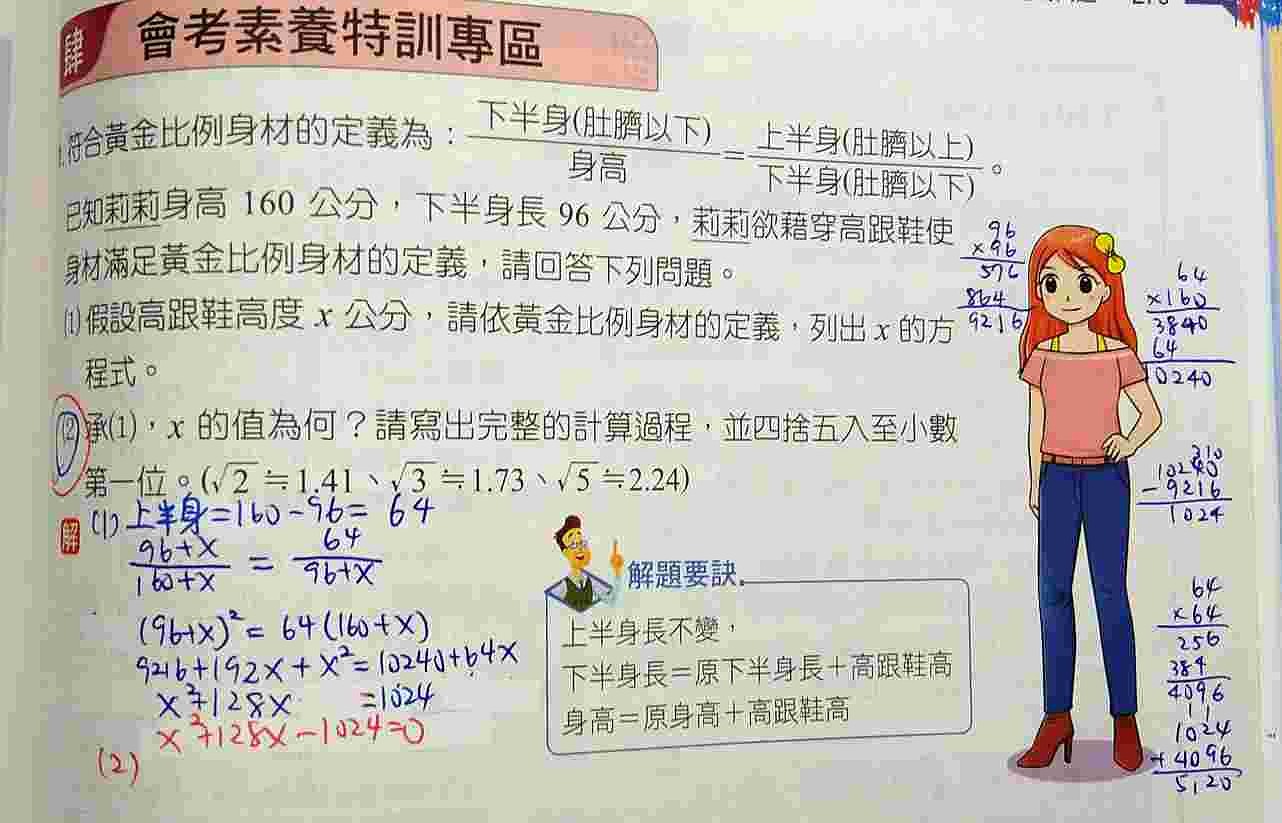 肆 會考素養特訓專區
符合黃金比例身材的定義為：下半身(肚臍以下)/身高＝上半身(肚臍以上)/下半身(肚臍以下)。
已知莉莉身高 160 公分，下半身長 96 公分，莉莉欲藉穿高跟鞋使
身材滿足黃金比例身材的定義，請回答下列問題。
(1)假設高跟鞋高度 x 公分，請依黃金比例身材的定義，列出 x 的方
程式。
(2)承(1)，x 的值為何？請寫出完整的計算過程，並四捨五入至小數
第一位。(√2≒1.41、√3≒1.73、√5≒2.24)
解
(1)上半身=160-96=64
96+x/160+x = 64/96+x
(96+x)²=64(160+x)
9216+192x+x²=10240+64x
x²+128x =1024
x²+128x-1024=0
(2)
解題要訣
上半身長不變，
下半身長＝原下半身長＋高跟鞋高
身高＝原身高＋高跟鞋高
96
×96
576
864
9216
64
×160
3840
64
10240
310
10240
-9216
1024
64
×64
256
384
4096
11
1024
+4096
5120